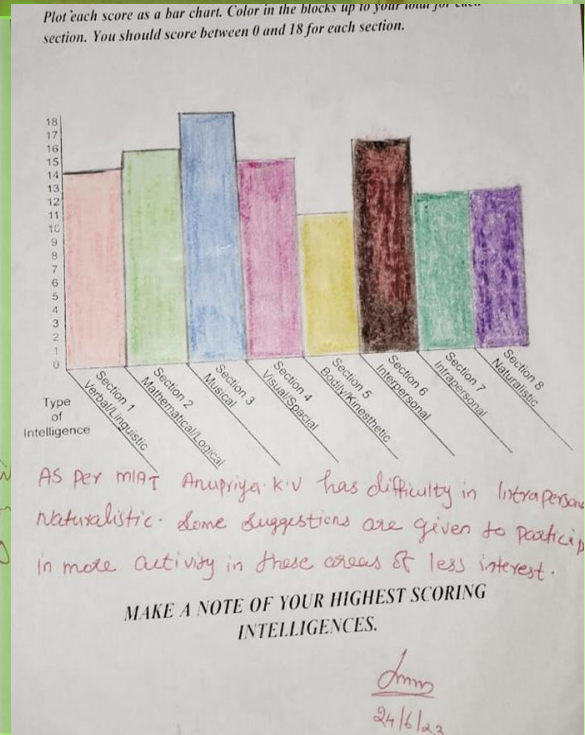 Plot each score as a bar chart. Color in the blocks up to your total for each
section. You should score between 0 and 18 for each section.
18
17
16
15
14
13
12
11
10
9
8
7
6
5
4
3
2
1
0
Type
of
Intelligence
Section 1
Verbal/Linguistic
Section 2
Mathematical/Logical
Section 3
Musical
Section 4
Visual/Spacial
Section 5
Bodily/Kinesthetic
Section 6
Interpersonal
Section 7
Intrapersonal
Section 8
Naturalistic
AS Per MIAT Anupriya.K.V has difficulty in Intraperson
Naturalistic. Some suggestions are given to particip
in more activity in these areas of less interest.
MAKE A NOTE OF YOUR HIGHEST SCORING
INTELLIGENCES.
24/6/23